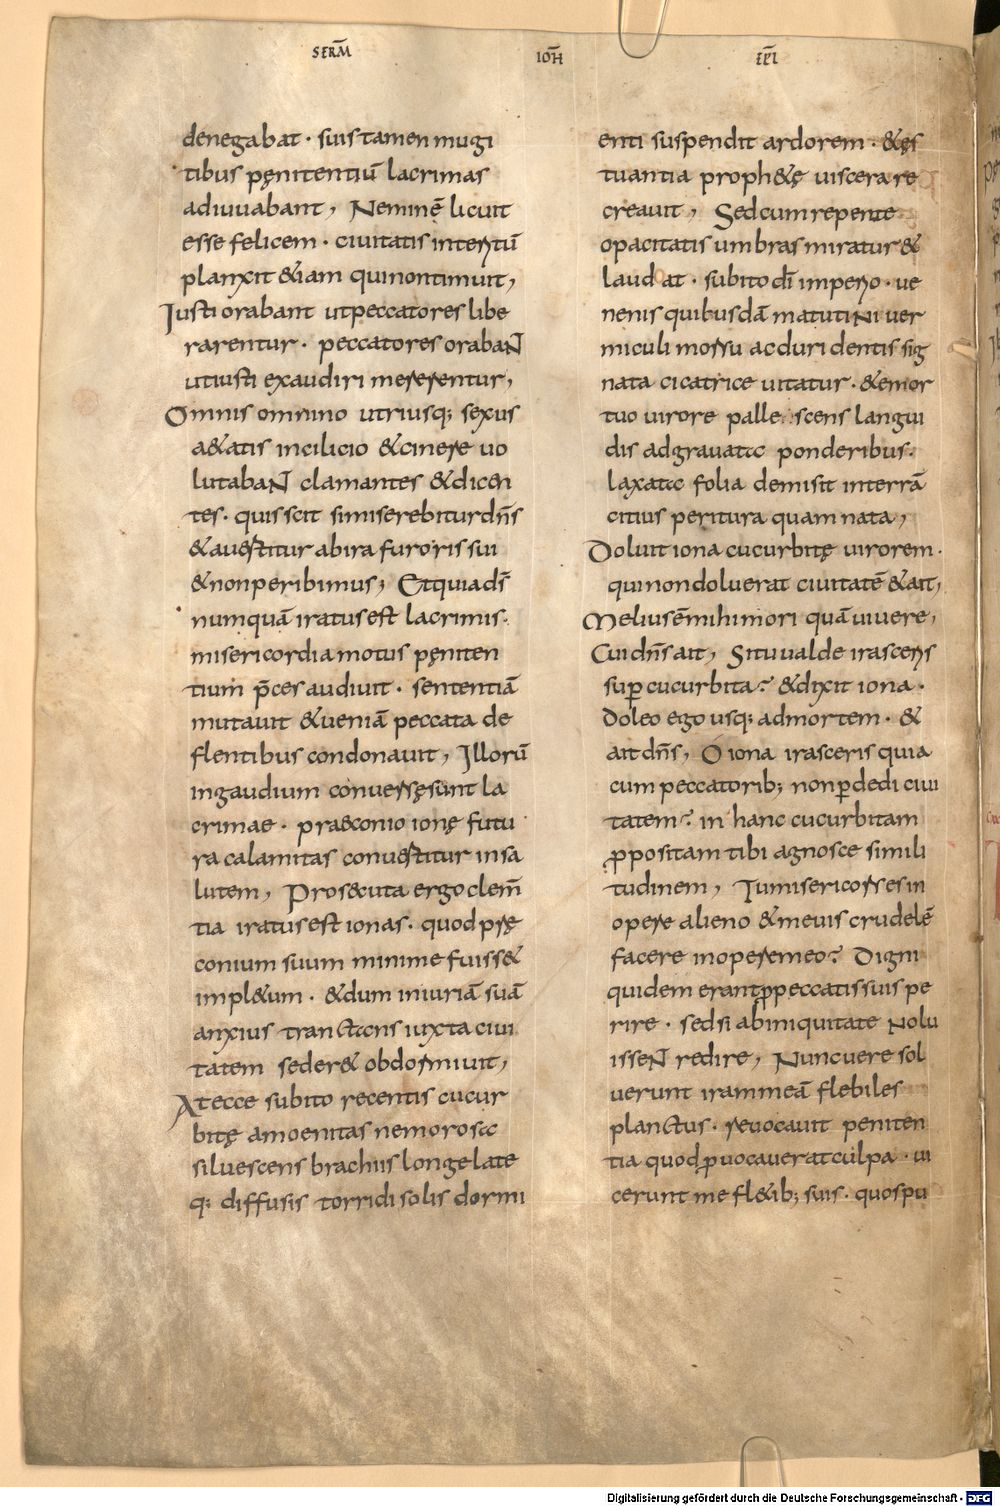 SERM̄ IOH̄ EP̄I
denegabat · suis tamen mugi
tibus pęnitentiū lacrimas
adiuuabant, Neminē licuit
esse felicem · ciuitatis interitū
planxit &iam qui non timuit,
Iusti orabant ut peccatores libe
rarentur · peccatores orabaNT
ut iusti exaudiri mererentur,
Omnis omnino utriusq; sexus
a&atis in cilicio & cinere uo
lutabaNT clamantes & dicen
tes · quis scit si miserebitur dn̄s
& auertitur ab ira furoris sui
& non peribimus; Et quia ds̄
numquā iratus est lacrimis ·
misericordia motus pęniten
tium p̄ces audiuit · sententiā
mutauit & ueniā peccata de
flentibus condonauit, Illorū
in gaudium conuersę sunt la
crimae · praeconio ionę futu
ra calamitas conuertitur in sa
lutem, Prosecuta ergo clem̄
tia iratus est ionas · quod prę
conium suum minime fuiss&
impl&um · & dum iniuriā suā
anxius tractans iuxta ciui
tatem seder& obdormiuit,
At ecce subito recentis cucur
bitę amoenitas nemorosa
siluescens brachiis longe late
q; diffusis torridi solis dormi
enti suspendit ardorem · & ęs
tuantia proph&ę uiscera re
creauit, Sed cum repente
opacitatis umbras miratur &
laudat · subito dī imperio · ue
nenis quibusdā matutiNi uer
miculi morsu ac duri dentis sig
nata cicatrice uitatur · & emor
tuo uirore palle scens langui
dis adgrauata ponderibus ·
laxata folia demisit in terrā
citius peritura quam nata,
Doluit iona cucurbitę uirorem ·
qui non doluerat ciuitatē & ait,
Melius ē mihi mori quā uiuere,
Cui dn̄s ait, Si tu ualde irasceris
sup̱ cucurbita? & dixit iona ·
Doleo ego usq; ad mortem · &
ait dn̄s, O iona irasceris quia
cum peccatorib; non p̱dedi ciui
tatem? in hanc cucurbitam
ꝓpositam tibi agnosce simili
tudinem, Tu misericors es in
opere alieno & me uis crudelē
facere in opere meo? Digni
quidem erant ꝓ peccatis suis pe
rire · sed si ab iniquitate nolu
isseNT redire, Nunc uere sol
uerunt iram meā flebiles
planctus · reuocauit peniten
tia quod ꝓuocauerat culpa · ui
cerunt me fl&ib; suis · quos pu